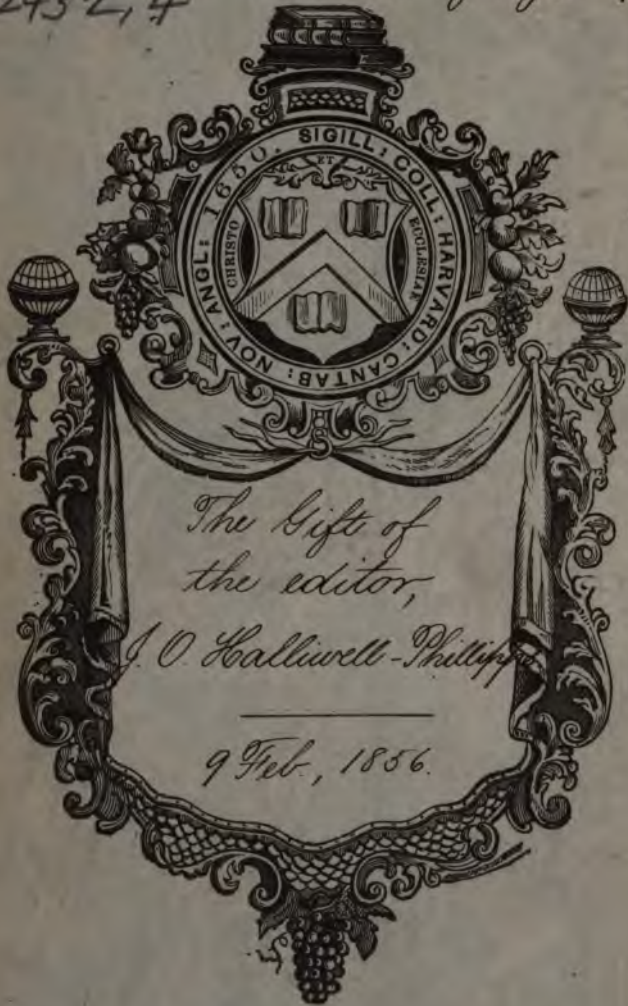 SIGILL: COLL: HARVARD: CANTAB: NOV: ANGL: 1650.
ET
CHRISTO
ECCLESIAE
The Gift of
the editor,
J. O. Halliwell-Phillipps
9 Feb., 1856.